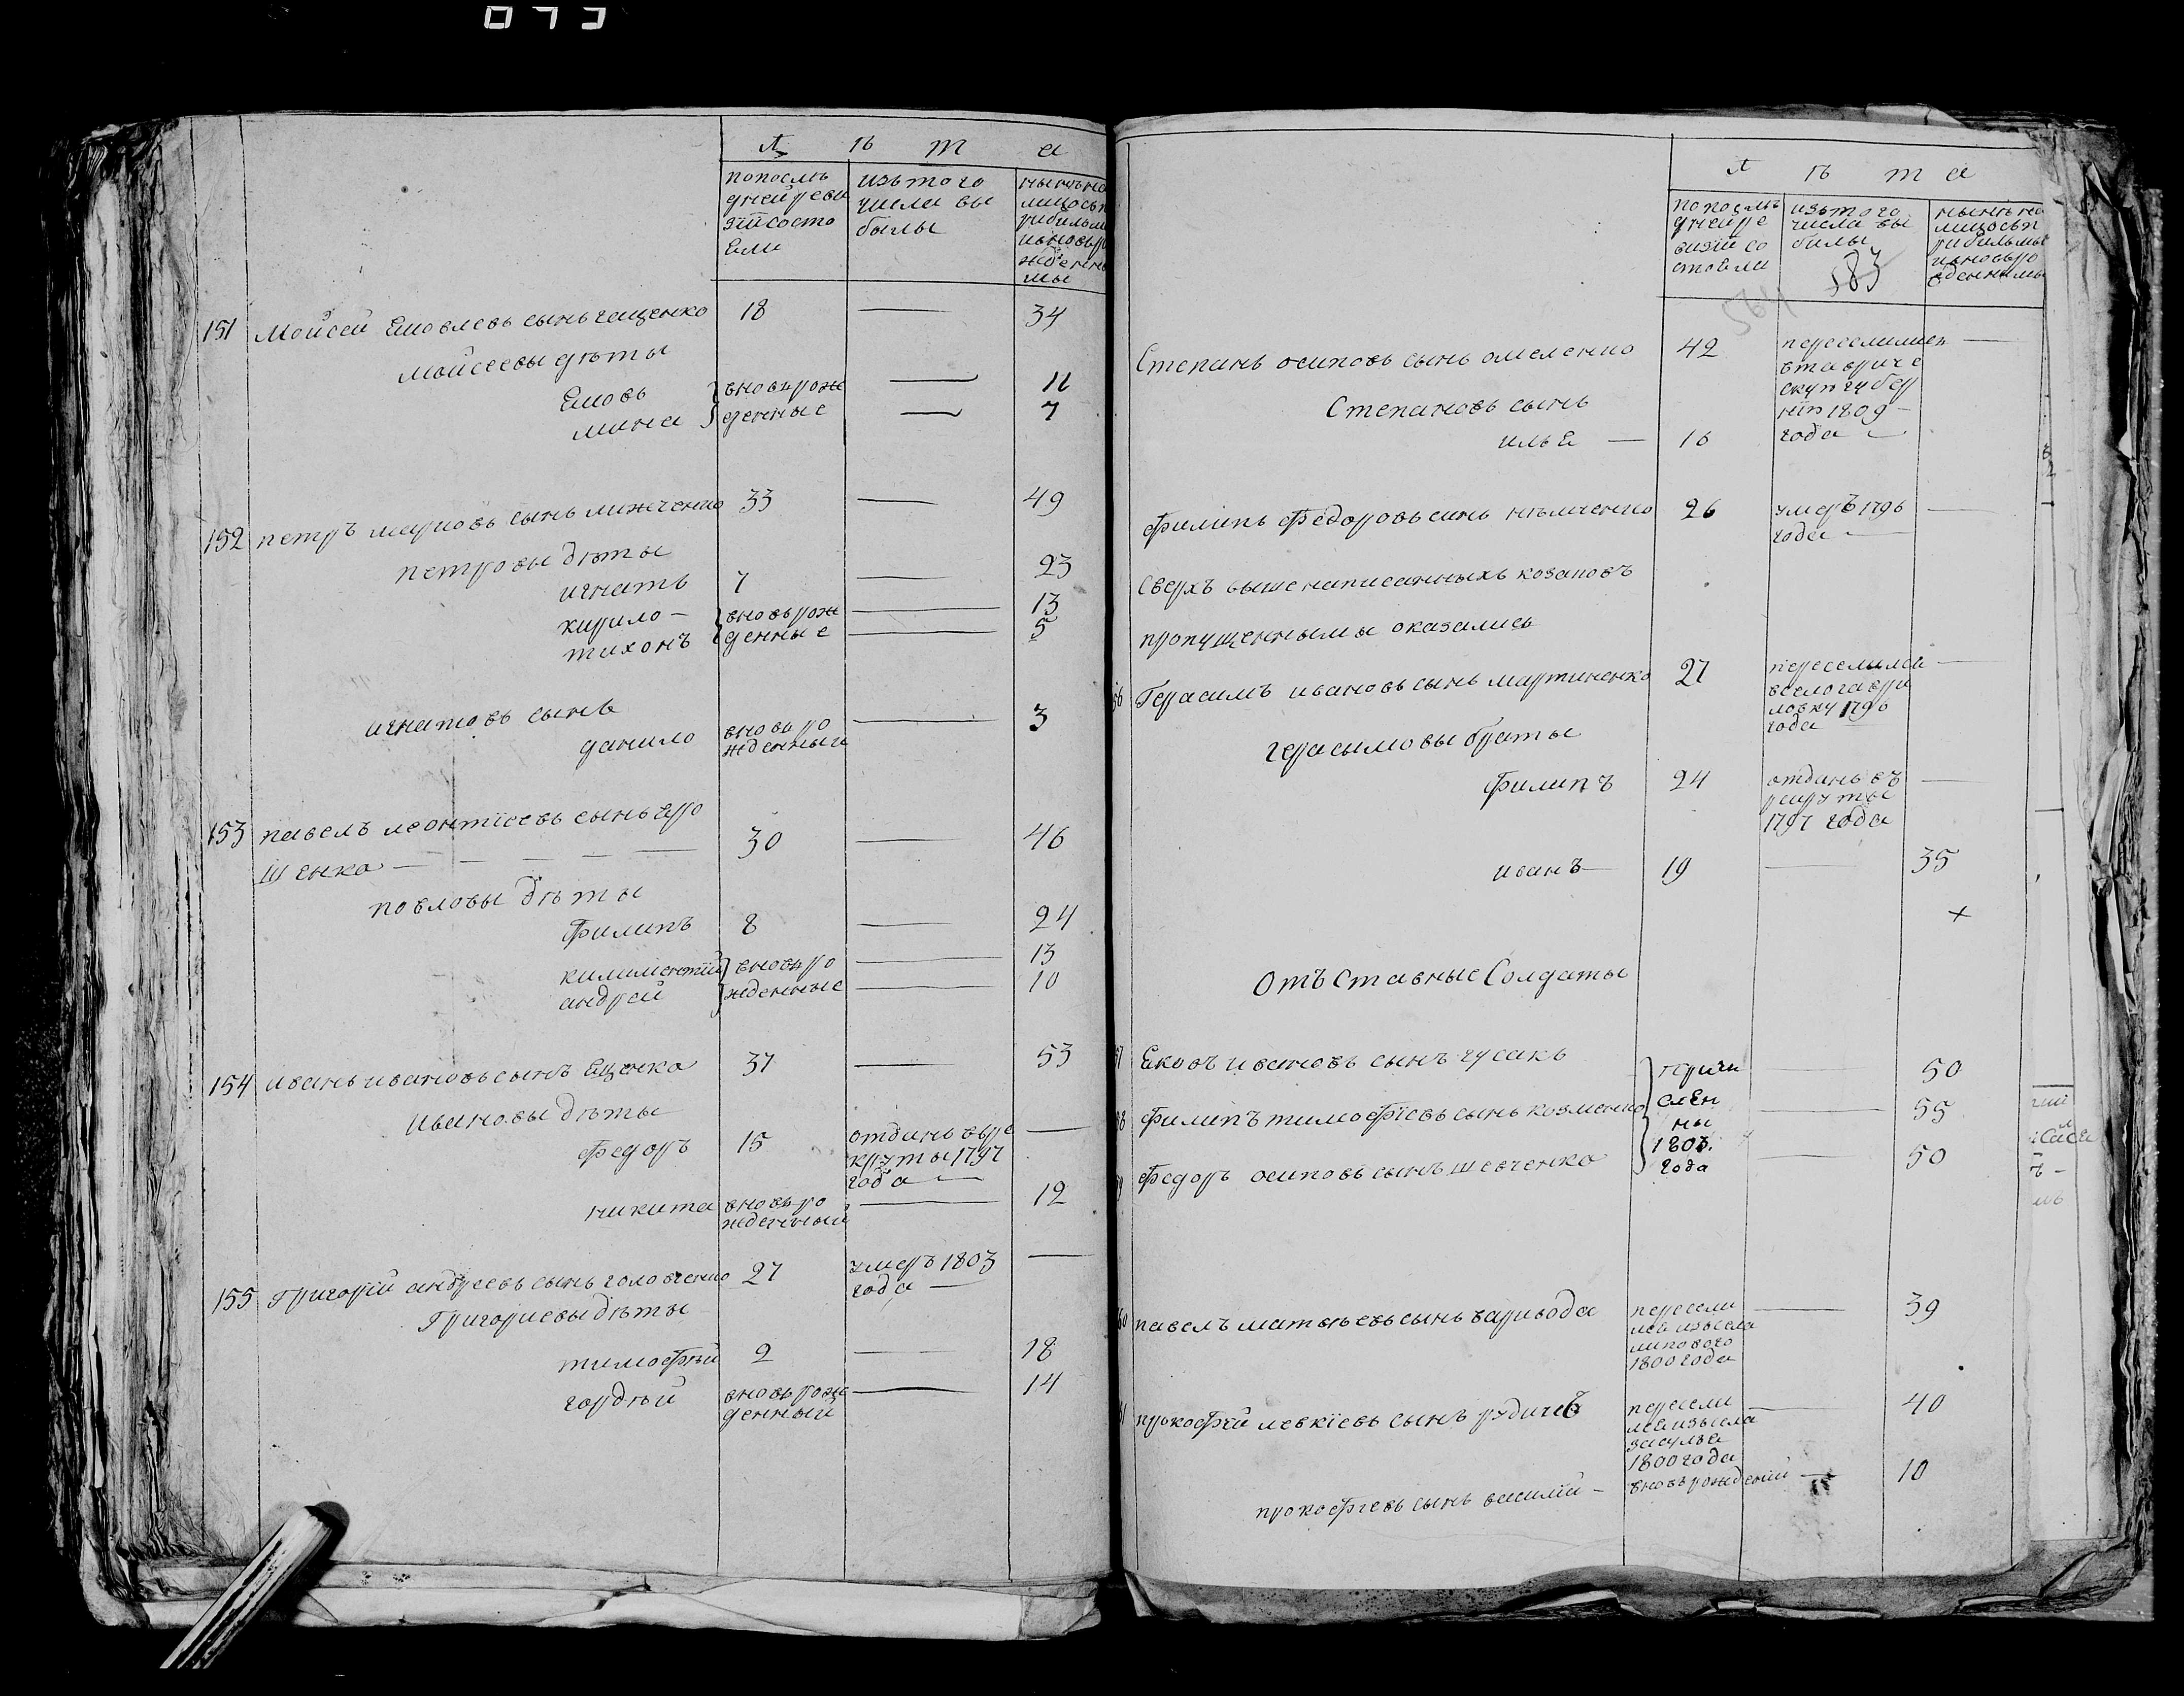 Лѣта
попослѣ дней реви зїй состо яли
изътого числа вы были
нынѣ на лицо съ п рибылым ивновь ро жденны мы
151 Мойсей Яковлевъ сынъ гащенко 18 — 34
мойсеевы дѣты
Яковъ вновьрож — 11
мина денные — 7
152 петръ марковъ сынъ лижченко 33 — 49
петровы дѣты
игнатъ 7 — 23
кирило — вновьрож — 13
тихонъ денные — 5
игнатовъ сынъ
данило вновь ро жденный — 3
153 павелъ леонтїевъ сынъ яро
шенко — 30 — 46
повловы дѣты
филипъ 8 — 24
килиментїй вновь ро — 13
андрей жденные — 10
154 иванъ ивановъ сынъ Ященко 37 — 53
Ивановы дѣты
федоръ 15 отданъ вре круты 1797 года —
никита вновь ро жденный — 12
155 Григорїй андреевъ сынъ головченко 27 умеръ 1803 года —
Григориевы дѣты
тимофѣй 2 — 18
гордѣй вновь рож денный — 14
Лѣта
попослѣ дней ре визїй со стояли
изътого числа вы были
нынѣ на лицо съ п рибылмы ивновь ро жденнымы
564 583
Степанъ осиповъ сынъ омеленко 42 переселился втавриче скую губер нїю 1809 года —
Степановъ сынъ
илья — 16
филипъ Федоровъ синъ нѣмченко 26 умеръ 1796 года —
Сверхъ вышенаписанныхъ козаковъ
пропущеннымы оказались
56 Герасимъ ивановъ сынъ мартиненко 27 переселился всело гаври ловку 1796 года —
герасымовы браты
филипъ 24 отданъ въ рекруты 1797 года —
иванъ — 19 — 35
+
Отъ Ставные Солдаты
57 Яковъ ивановъ сынъ гусакъ причи — 50
58 филипъ тимофїевъ сынъ козменко слен ны — 55
59 федоръ осиповъ сынъ шевченко 1803. года — 50
60 павелъ матвѣевъ сынъ варивода пересели лся изъсела липового 1800 года — 39
61 прокофїй левкїевъ сынъ рудичъ пересели лся изъсела засулья 1800 года — 40
прокофїевъ сынъ василїй — вновьрожденїй — 10